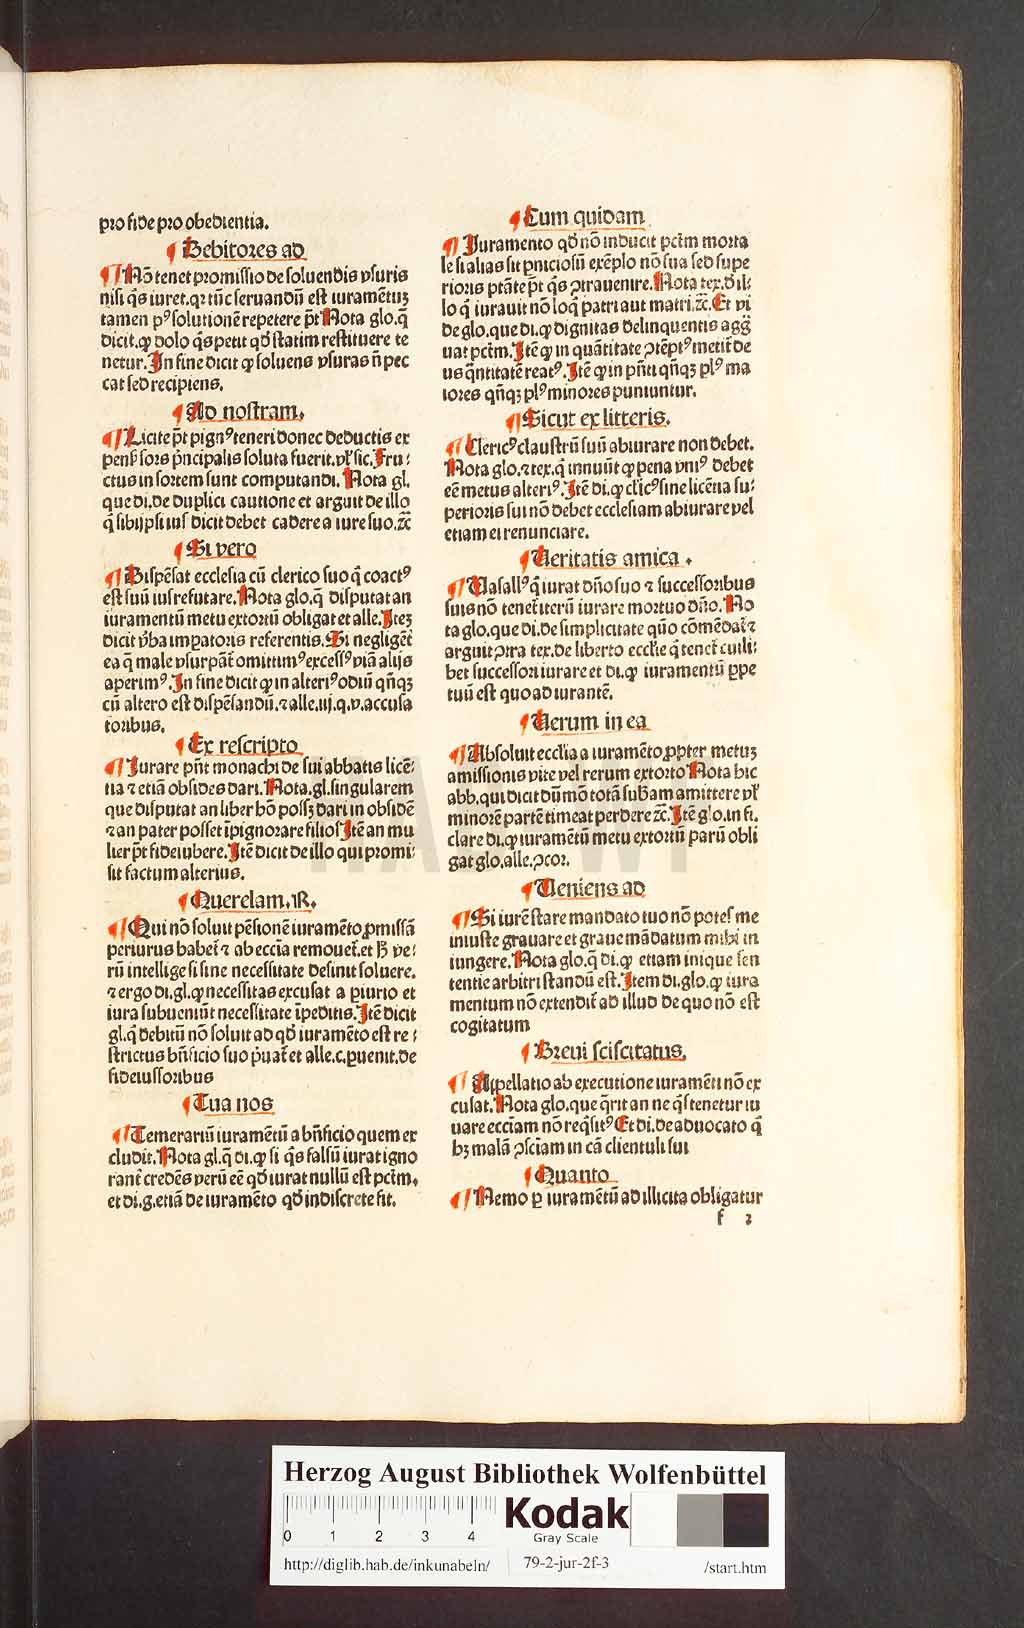 pro fide pro obedientia.
¶ Debitores ad
¶ Nō tenet promissio de soluendis vsuris
nisi q̄s iuret. qꝛ tūc seruandū est iuramētuꝫ
tamen pꝰ solutionē repetere p̄t Nota glo. q̄
dicit. ꝙ dolo q̄s petit qd̄ statim restituere te
netur. In fine dicit ꝙ soluens vsuras n̄ pec
cat sed recipiens.
¶ Ad nostram.
¶ Licite p̄t pignꝰ teneri donec deductis ex
penſ sors p̄ncipalis soluta fuerit. vl̓ sic. Fru⸗
ctus in sortem sunt computandi. Nota gl.
que di. de duplici cautione et arguit de illo
q̄ sibijpsi ius dicit debet cadere a iure suo. ꝛc̄
¶ Si vero
¶ Dispēsat ecclesia cū clerico suo q̄ coactꝰ
est suū ius refutare. Nota glo. q̄ disputat an
iuramentū metu extortū obligat et alle. Iteꝫ
dicit v̄ba imꝑatoris referentis. Si negligēt
ea q̄ male vsurpāt̄ omittimꝰ excessꝰ viā alijs
aperimꝰ. In fine dicit ꝙ in alteriꝰ odiū qn̄qꝫ
cū altero est dispēsandū. ⁊ alle. iij. q. v. accusa
toribus.
¶ Ex rescripto
¶ Iurare pn̄t monachi de sui abbatis licē⸗
tia ⁊ etiā obsides dari. Nota. gl. singularem
que disputat an liber hō possꝫ dari in obsidē
⁊ an pater posset īpignorare filios Itē an mu
lier p̄t fideiubere. Itē dicit de illo qui promi⸗
sit factum alterius.
¶ Querelam. R.
¶ Qui nō soluit pēsionē iuramēto ꝓmissā
periurus habet̄ ⁊ ab eccīa remouet̄. et ꝧ ve⸗
rū intellige si sine necessitate desinit soluere.
⁊ ergo di. gl. ꝙ necessitas excusat a ꝑiurio et
iura subueniūt necessitate īpeditis. Itē dicit
gl. q̄ debitū nō soluit ad qd̄ iuramēto est re⸗
strictus bn̄ficio suo p̄uat̄ et alle. c. ꝑuenit. de
fideiussoribus
¶ Tua nos
¶ Temerariū iuramētū a bn̄ficio quem ex
cludit. Nota gl. q̄ di. ꝙ si q̄s falsū iurat igno
rant̄ credēs verū eē qd̄ iurat nullū est pctm̄.
et di. g. etiā de iuramēto qd̄ indiscrete fit.
¶ Cum quidam
¶ Iuramento qd̄ nō inducit pct̄m morta
le si alias sit ꝑniciosū exēplo nō sua sed supe
rioris ptāte p̄t q̄s ꝯtrauenire. Nota tex. d̄ il⸗
lo q̄ iurauit nō loq̄ patri aut matri. ꝛc̄. Et vi
de glo. que di. ꝙ dignitas delinquentis agg̃
uat pctm̄. Itē ꝙ in quātitate ꝯtēptꝰ metit̄ de
us q̄ntitatē reatꝰ. Itē ꝙ in pn̄ti qn̄qꝫ plꝰ ma
iores qn̄qꝫ plꝰ minores puniuntur.
¶ Sicut ex litteris.
¶ Clericꝰ claustrū suū abiurare non debet.
Nota glo. ⁊ tex. q̄ innuūt ꝙ pena vniꝰ debet
eē metus alteriꝰ. Itē di. ꝙ cl̓icꝰ sine licētia su⸗
perioris sui nō debet ecclesiam abiurare vel
etiam ei renunciare.
¶ Veritatis amica.
¶ Vasallꝰ q̄ iurat dn̄o suo ⁊ successoribus
suis nō tenet̄ iterū iurare mortuo dn̄o. No
ta glo. que di. de simplicitate quō cōmēdat̄ ⁊
arguit ꝯtra tex. de liberto eccl̓ie q̄ tenet̄ cuili⸗
bet successori iurare et di. ꝙ iuramentū ꝑpe
tuū est quo ad iurantē.
¶ Verum in ea
¶ Absoluit eccl̓ia a iuramēto ꝓpter metuꝫ
amissionis vite vel rerum extorto Nota hic
abb. qui dicit dūmō totā subam amittere vl̓
minorē partē timeat perdere ꝛc̄. Itē glo. in fi.
clare di. ꝙ iuramētū metu extortū parū obli
gat glo. alle. ꝯcor.
¶ Veniens ad
¶ Si iurē stare mandato tuo nō potes me
iniuste grauare et graue mādatum mihi in
iungere. Nota glo. q̄ di. ꝙ etiam inique sen
tentie arbitri standū est. Item di. glo. ꝙ iura
mentum nō extendit̄ ad illud de quo nō est
cogitatum
¶ Breui sciscitatus.
¶ Appellatio ab executione iuramēti nō ex
cusat. Nota glo. que q̄rit an ne q̄s tenetur iu
uare eccīam nō req̄sitꝰ Et di. de aduocato q̄
hꝫ malā ꝯsciam in cā clientuli sui
¶ Quanto
¶ Nemo ꝑ iuramētū ad illicita obligatur
f 2
Herzog August Bibliothek Wolfenbüttel
0 1 2 3 4
Kodak
Gray Scale
http://diglib.hab.de/inkunabeln/ 79-2-jur-2f-3 /start.htm